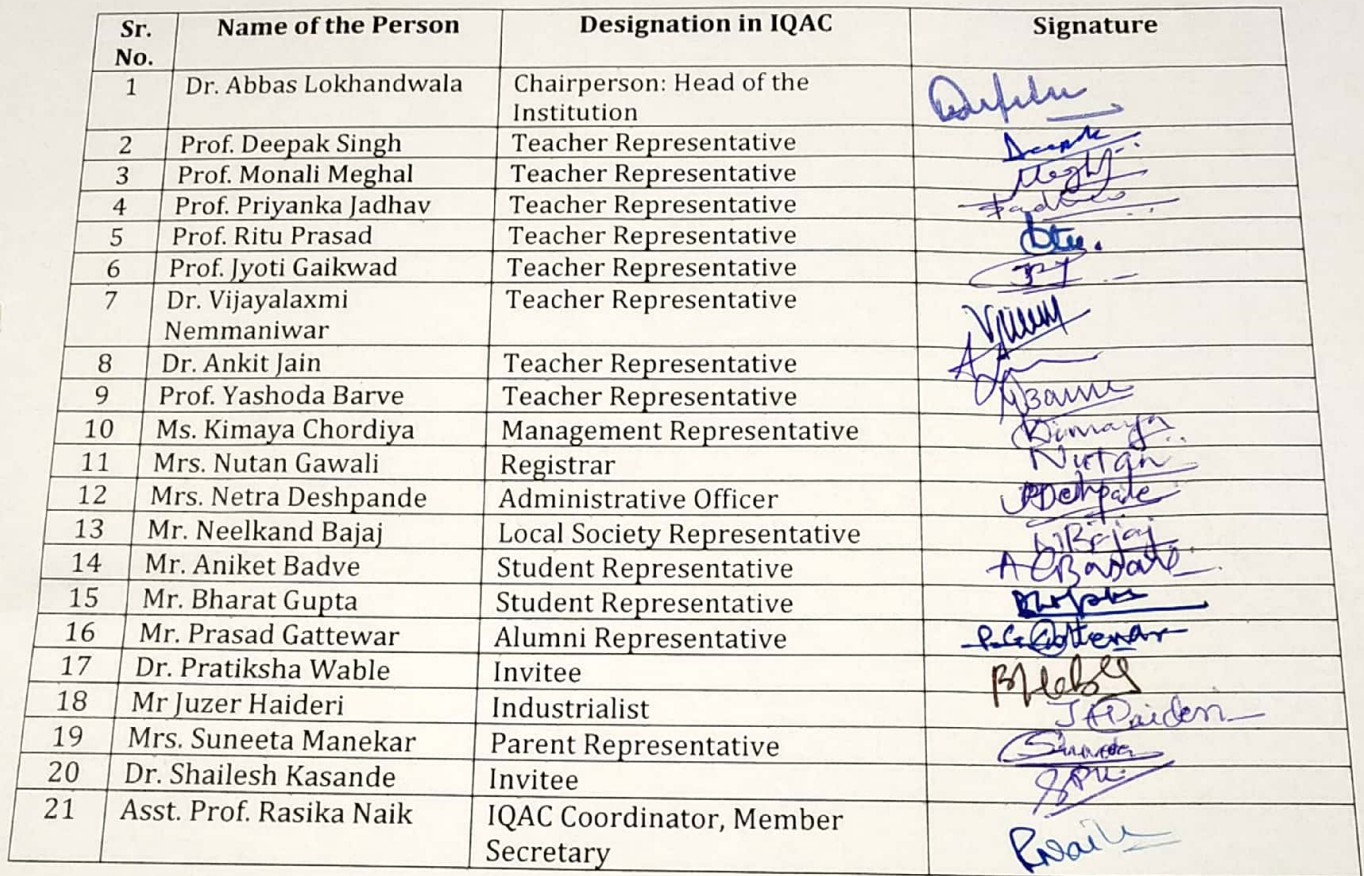 Sr. No. Name of the Person Designation in IQAC Signature
1 Dr. Abbas Lokhandwala Chairperson: Head of the Institution
2 Prof. Deepak Singh Teacher Representative Deepak
3 Prof. Monali Meghal Teacher Representative
4 Prof. Priyanka Jadhav Teacher Representative
5 Prof. Ritu Prasad Teacher Representative
6 Prof. Jyoti Gaikwad Teacher Representative
7 Dr. Vijayalaxmi Nemmaniwar Teacher Representative
8 Dr. Ankit Jain Teacher Representative
9 Prof. Yashoda Barve Teacher Representative
10 Ms. Kimaya Chordiya Management Representative Kimaya
11 Mrs. Nutan Gawali Registrar Nutan
12 Mrs. Netra Deshpande Administrative Officer
13 Mr. Neelkand Bajaj Local Society Representative NBajaj
14 Mr. Aniket Badve Student Representative
15 Mr. Bharat Gupta Student Representative
16 Mr. Prasad Gattewar Alumni Representative P.G. Gattewar
17 Dr. Pratiksha Wable Invitee
18 Mr Juzer Haideri Industrialist J Haideri
19 Mrs. Suneeta Manekar Parent Representative
20 Dr. Shailesh Kasande Invitee
21 Asst. Prof. Rasika Naik IQAC Coordinator, Member Secretary RNaik